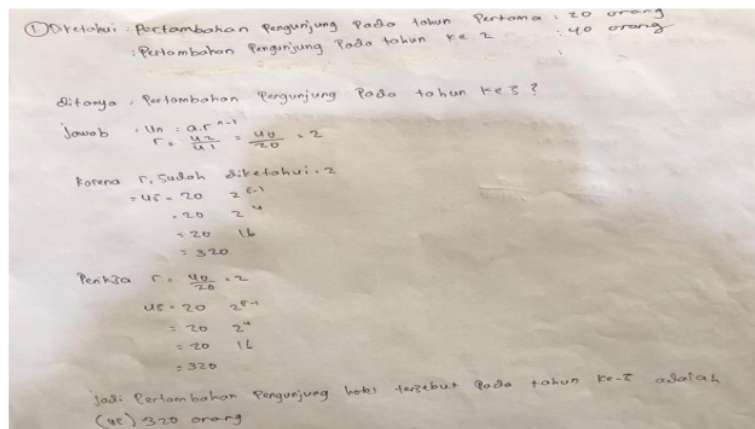 ① Diketahui : Pertambahan Pengunjung Pada tahun Pertama : 20 orang
: Pertambahan Pengunjung Pada tahun ke 2 : 40 orang
ditanya : Pertambahan Pengunjung Pada tahun ke 5 ?
Jawab : Un = a.r^n-1
r = U2/U1 = 40/20 = 2
Karena r, sudah diketahui = 2
= U5 = 20 2^5-1
= 20 2^4
= 20 16
= 320
Periksa r = 40/20 = 2
U5 = 20 2^5-1
= 20 2^4
= 20 16
= 320
Jadi Pertambahan Pengunjung hotel tersebut Pada tahun ke-5 adalah
(U5) 320 orang